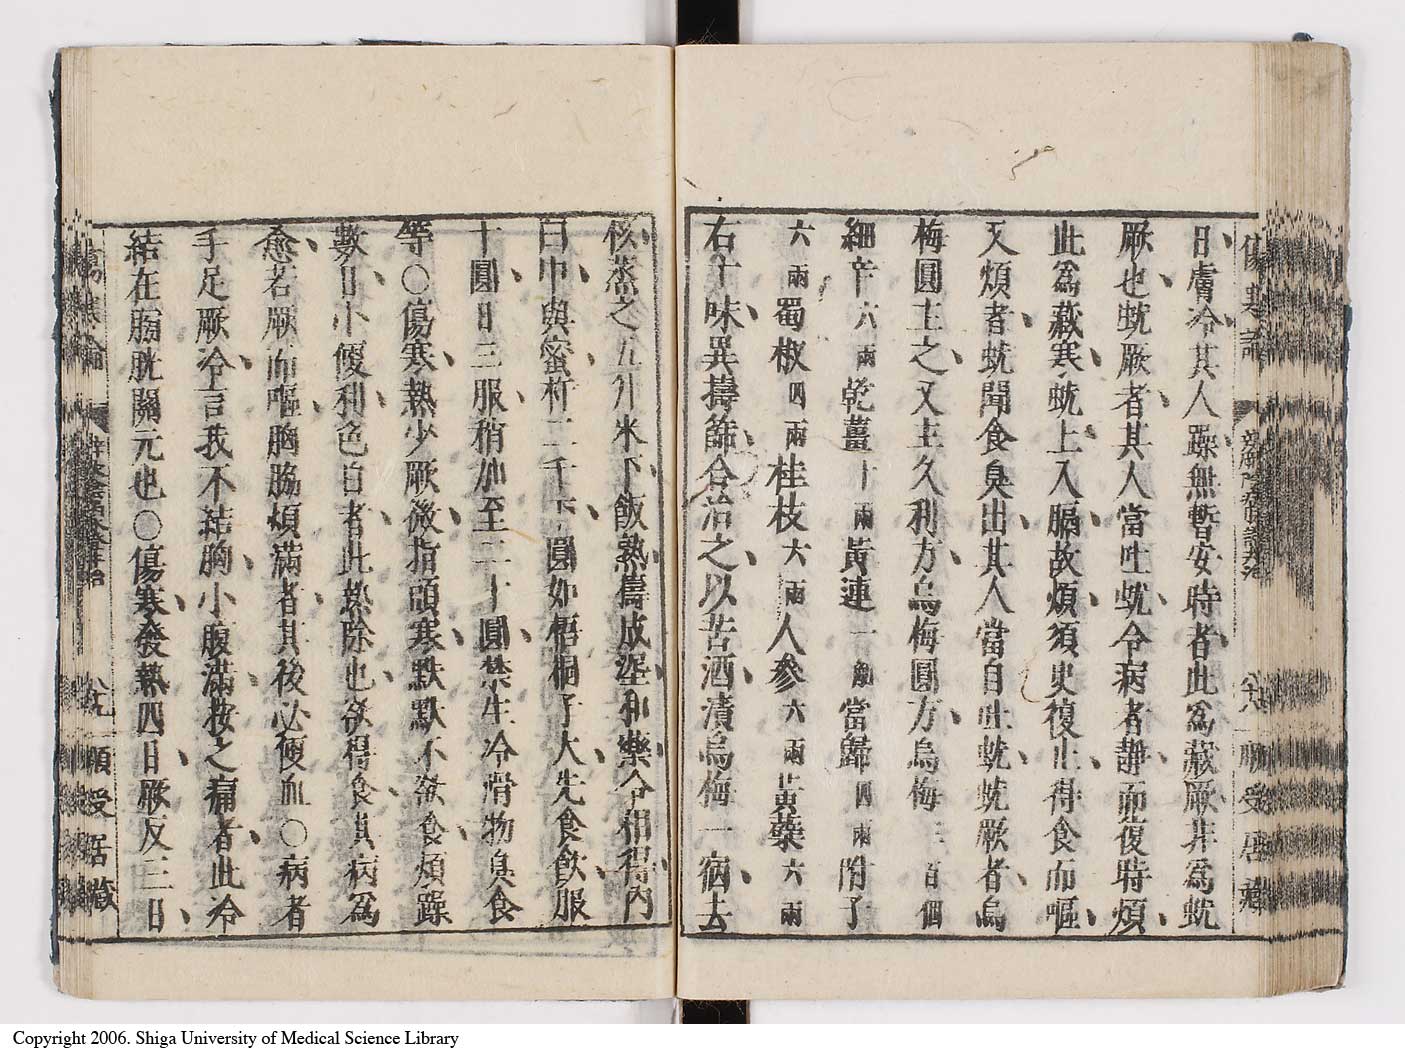 傷寒論
日膚冷其人躁無暫安時者此爲藏厥非爲蚘
厥也蚘厥者其人當吐蚘令病者靜而復時煩
此爲藏寒蚘上入膈故煩須臾復止得食而嘔
又煩者蚘聞食臭出其人當自吐蚘蚘厥者烏
梅圓主之又主久利方烏梅圓方烏梅三百個
細辛六兩乾薑十兩黃連一觔當歸四兩附子
六兩蜀椒四兩桂枝六兩人參六兩黃蘗六兩
右十味異擣篩合治之以苦酒漬烏梅一宿去
核蒸之五升米下飯熟擣成泥和藥令相得內
臼中與蜜杵二千下圓如梧桐子大先食飲服
十圓日三服稍加至二十圓禁生冷滑物臭食
等○傷寒熱少厥微指頭寒默默不欲食煩躁
數日小便利色白者此熱除也欲得食其病爲
愈若厥而嘔胸脇煩滿者其後必便血○病者
手足厥冷言我不結胸小腹滿按之痛者此冷
結在膀胱關元也○傷寒發熱四日厥反三日
傷寒論
Copyright 2006. Shiga University of Medical Science Library